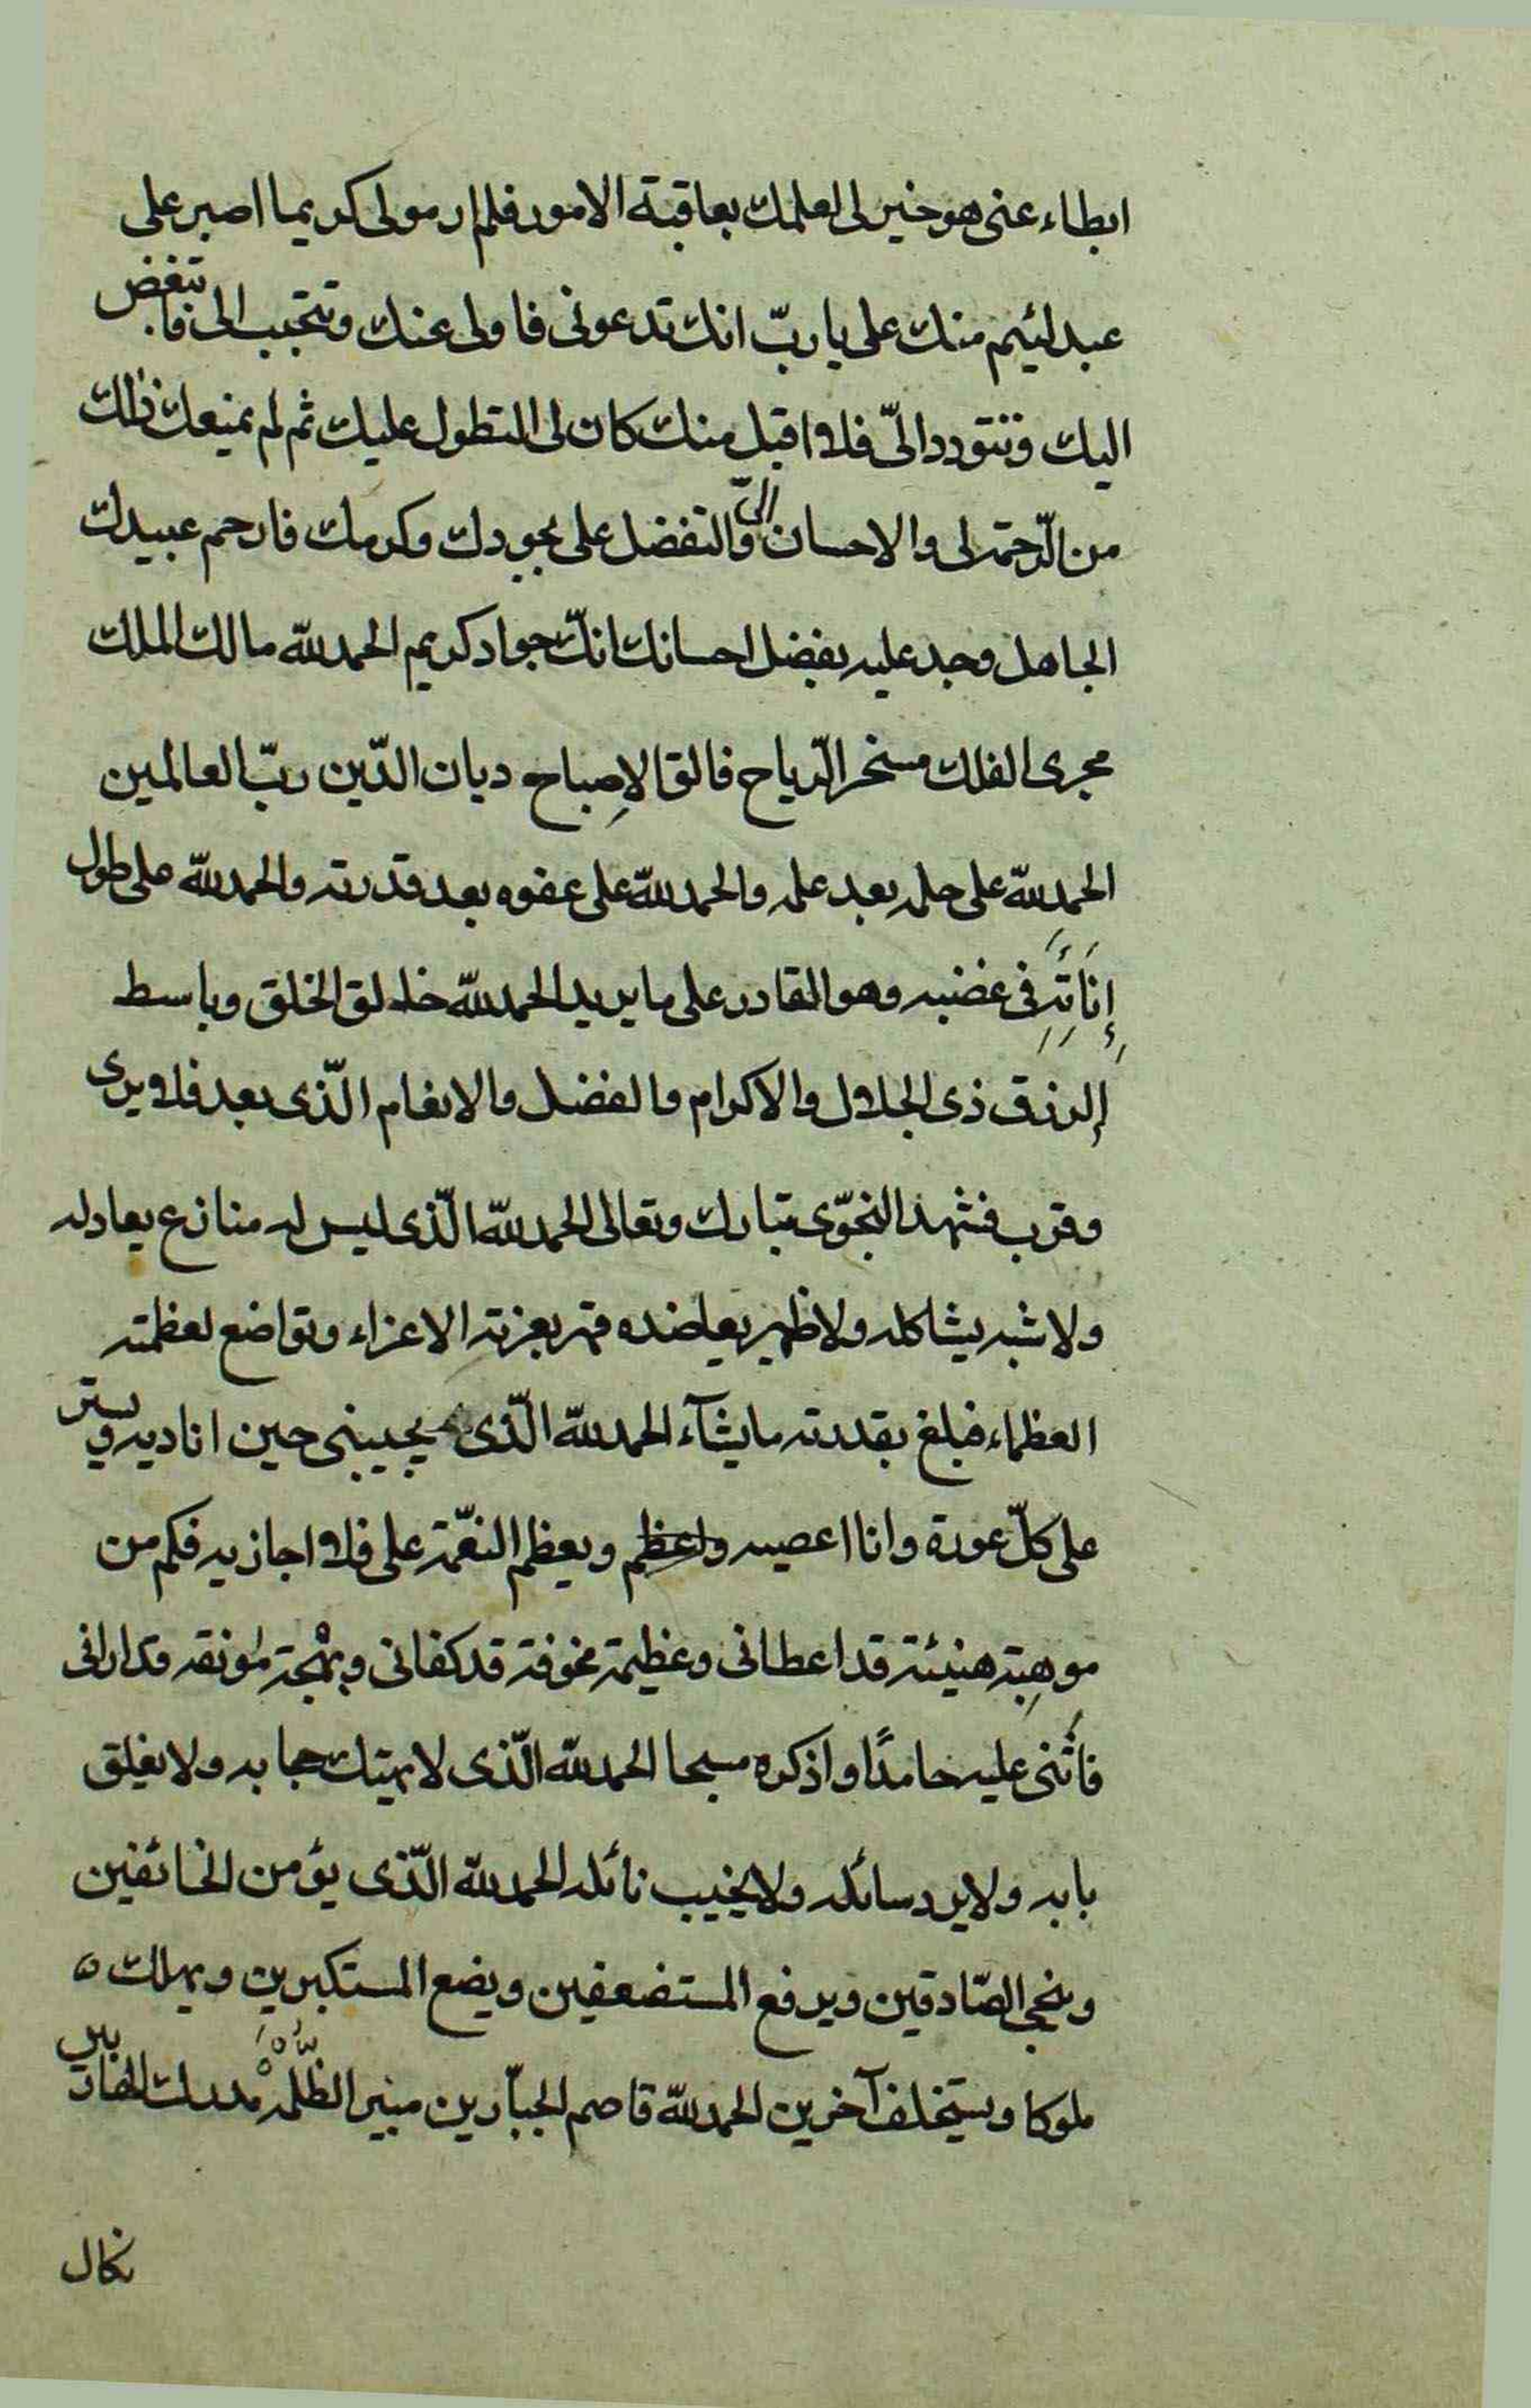 ابطاء عنى هو خير لى لعلمك بعاقبة الامور فلم ار مولى كريما اصبر على
عبد لئيم منك على يا ربّ انك تدعونى فاولى عنك وتتحبب الى فاتبغض
اليك وتتودد الىّ فلا اقبل منك كان لى التطول عليك ثم لم يمنعك ذلك
من الرّحمة لى والاحسان الىّ والتفضل على بجودك وكرمك فارحم عبيدك
الجاهل وجد عليه بفضل احسانك انكّ جواد كريم الحمد للّه مالك الملك
مجرى الفلك مسخر الرّياح فالق الإصباح ديان الدّين ربّ العالمين
الحمد للّه على حلمه بعد علمه والحمد للّه على عفوه بعد قدرته والحمد للّه على طول
إنَاتَِهِ فى غضبه وهو القادر على ما يريد الحمد للّه خالق الخلق وباسط
الرزق ذى الجلال والاكرام والفضل والانعام الّذى بعد فلا يرى
وقرب فشهد النجوّى تبارك وتعالى الحمد للّه الّذى ليس له منازع يعادله
ولا شبه يشاكله ولا ظهير يعاضده قهر بعزته الاعزاء وتواضع لعظمته
العظماء فبلغ بقدرته ما يشآء الحمد للّه الّذى يجيبنى حين اناديه ويستر
على كلّ عورة وانا اعصيه واعظم ويعظم النعّمة على فلا اجازيه فكم من
موهِبة هنيئة قد اعطانى وعظيمة مخوفة قد كفانى وبهْجة مونقه قد ارانى
فاُثنى عليه حامدًا واذكره مسبحا الحمد للّه الّذى لا يهتك حجابه ولا يغلق
بابه ولا يرد سائله ولا يخيب نائله الحمد للّه الّذى يؤمن الخائفين
وينجى الصّادقين ويرفع المستضعفين ويضع المستكبرين ويهلك ه
ملوكا ويستخلف آخرين الحمد للّه قاصم الجبّارين مبير الظّلمَه مدرك الهاربين
نكال